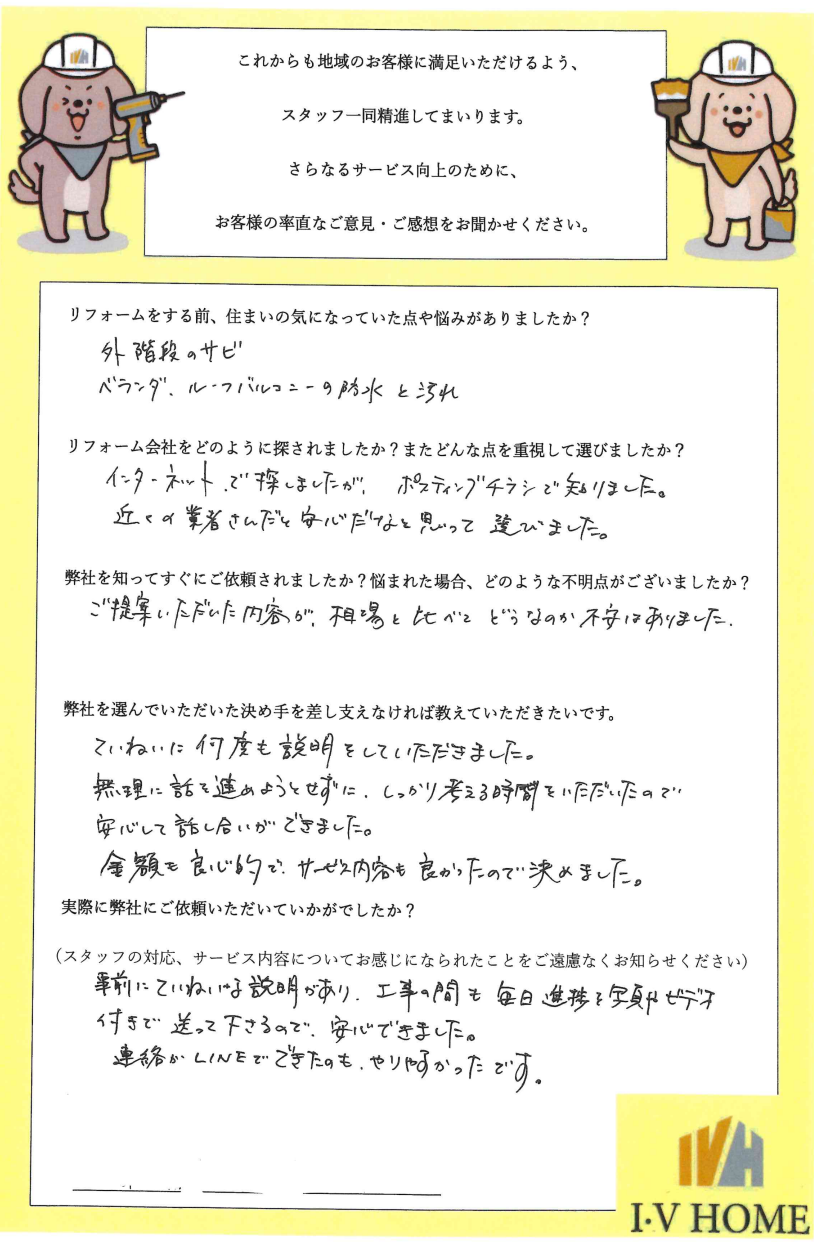 これからも地域のお客様に満足いただけるよう、
スタッフ一同精進してまいります。
さらなるサービス向上のために、
お客様の率直なご意見・ご感想をお聞かせください。
リフォームをする前、住まいの気になっていた点や悩みがありましたか？
外階段のサビ
ベランダ、ルーフバルコニーの防水と汚れ
リフォーム会社をどのように探されましたか？またどんな点を重視して選びましたか？
インターネットで探しましたが、ポスティングチラシで知りました。
近くの業者さんだと安心だなと思って選びました。
弊社を知ってすぐにご依頼されましたか？悩まれた場合、どのような不明点がございましたか？
ご提案いただいた内容が、相場と比べてどうなのか不安はありました．
弊社を選んでいただいた決め手を差し支えなければ教えていただきたいです。
ていねいに何度も説明をしていただきました。
無理に話を進めようとせずに、しっかり考える時間をいただいたので
安心して話し合いができました。
金額も良心的で、サービス内容も良かったので決めました。
実際に弊社にご依頼いただいていかがでしたか？
（スタッフの対応、サービス内容についてお感じになられたことをご遠慮なくお知らせください）
事前にていねいな説明があり、工事の間も毎日進捗を写真やビデオ
付きで送って下さるので、安心できました。
連絡がLINEでできたのも、やりやすかったです。
IVH
I・V HOME